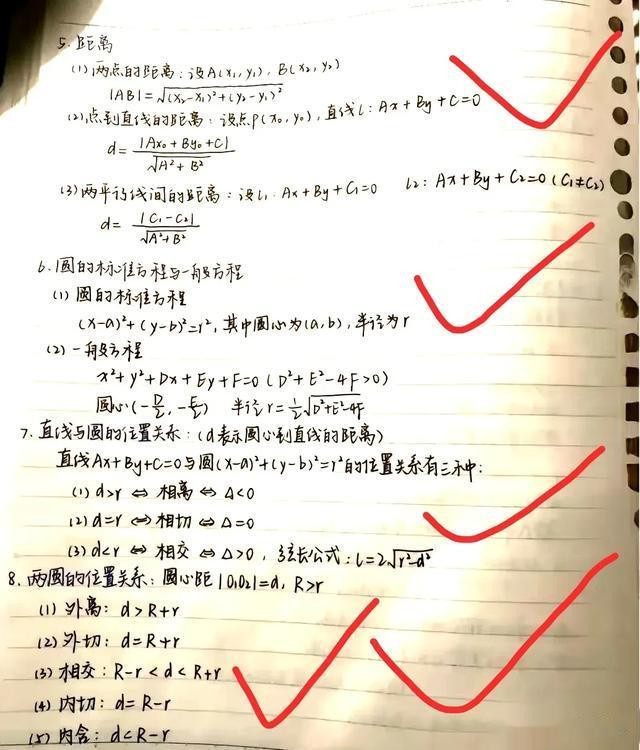 5. 距离
(1) 两点的距离：设A(x₁, y₁), B(x₂, y₂)
|AB|=√((x₂-x₁)²+(y₂-y₁)²)
(2) 点到直线的距离：设点P(x₀, y₀), 直线l: Ax+By+C=0
d = |Ax₀+By₀+C| / √(A²+B²)
(3) 两平行线间的距离：设l₁: Ax+By+C₁=0 l₂: Ax+By+C₂=0 (C₁≠C₂)
d= |C₁-C₂| / √(A²+B²)
6. 圆的标准方程与一般方程
(1) 圆的标准方程
(x-a)²+(y-b)²=r², 其中圆心为(a,b), 半径为r
(2) 一般方程
x²+y²+Dx+Ey+F=0 (D²+E²-4F>0)
圆心(-D/2, -E/2) 半径r=½√(D²+E²-4F)
7. 直线与圆的位置关系：(d表示圆心到直线的距离)
直线Ax+By+C=0与圆(x-a)²+(y-b)²=r²的位置关系有三种：
(1) d>r ⇔ 相离 ⇔ Δ<0
(2) d=r ⇔ 相切 ⇔ Δ=0
(3) d<r ⇔ 相交 ⇔ Δ>0, 弦长公式：l=2√(r²-d²)
8. 两圆的位置关系：圆心距|O₁O₂|=d, R>r
(1) 外离：d>R+r
(2) 外切：d=R+r
(3) 相交：R-r<d<R+r
(4) 内切：d=R-r
(5) 内含：d<R-r